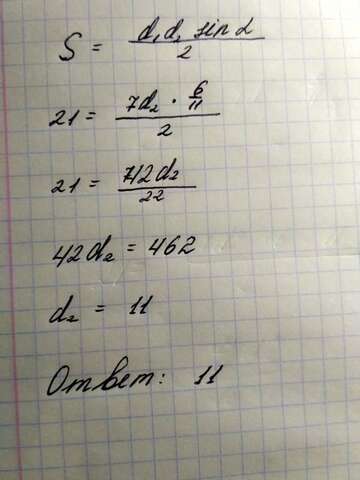 S = d₁d₂ sin α / 2
21 = 7d₂ · 6/11 / 2
21 = 42d₂ / 22
42d₂ = 462
d₂ = 11
Ответ: 11